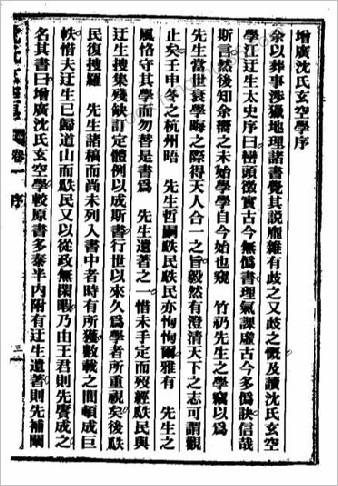 增廣沈氏玄空學序
余以葬事涉獵地理諸書覺其說龐雜有歧之又歧之慨及讀沈氏玄空
學江迂生太史序曰巒頭徵實古今無僞書理氣課虛古今多僞訣信哉
斯言然後知余曩之未始學學自今始也竊 竹礽先生之學竊以爲
先生當世衰學晦之際得天人合一之旨毅然有澄清天下之志可謂觀
止矣壬申冬之杭州晤 先生哲嗣瓞民瓞民亦恂恂爾雅有 先生之
風恪守其學而勿替是書爲 先生遺著之一惜未手定而歿經瓞民與
迂生搜集殘缺訂定體例以成斯書行世以來久爲學者所重視矣後瓞
民復搜羅 先生諸稿而尚未列入書中者時有所獲數載之間頓成巨
帙惜夫迂生已歸道山而瓞民又以從政無閑暇乃由王君則先賡成之
名其書曰增廣沈氏玄空學較原書多泰半內附有迂生遺著則先補闕
卷一 序
三